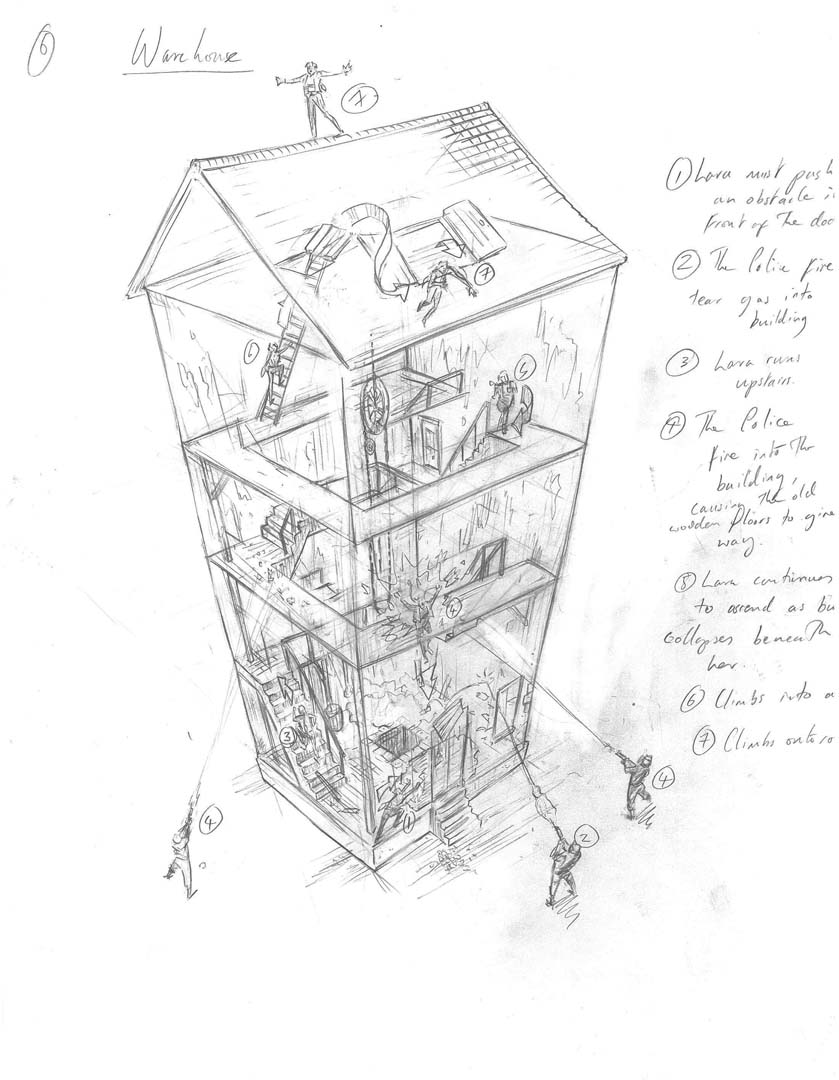 6
Warehouse
7
1 Lara must push
an obstacle i
front of the doo
2 The Police fire
tear gas into
building
3 Lara runs
upstairs.
4 The Police
fire into the
building,
causing the old
wooden floors to give
way.
5 Lara continues
to ascend as bu
collapses beneath
her.
6 Climbs into a
7 Climbs onto ro
7
6
5
4
3
1
4
4
2